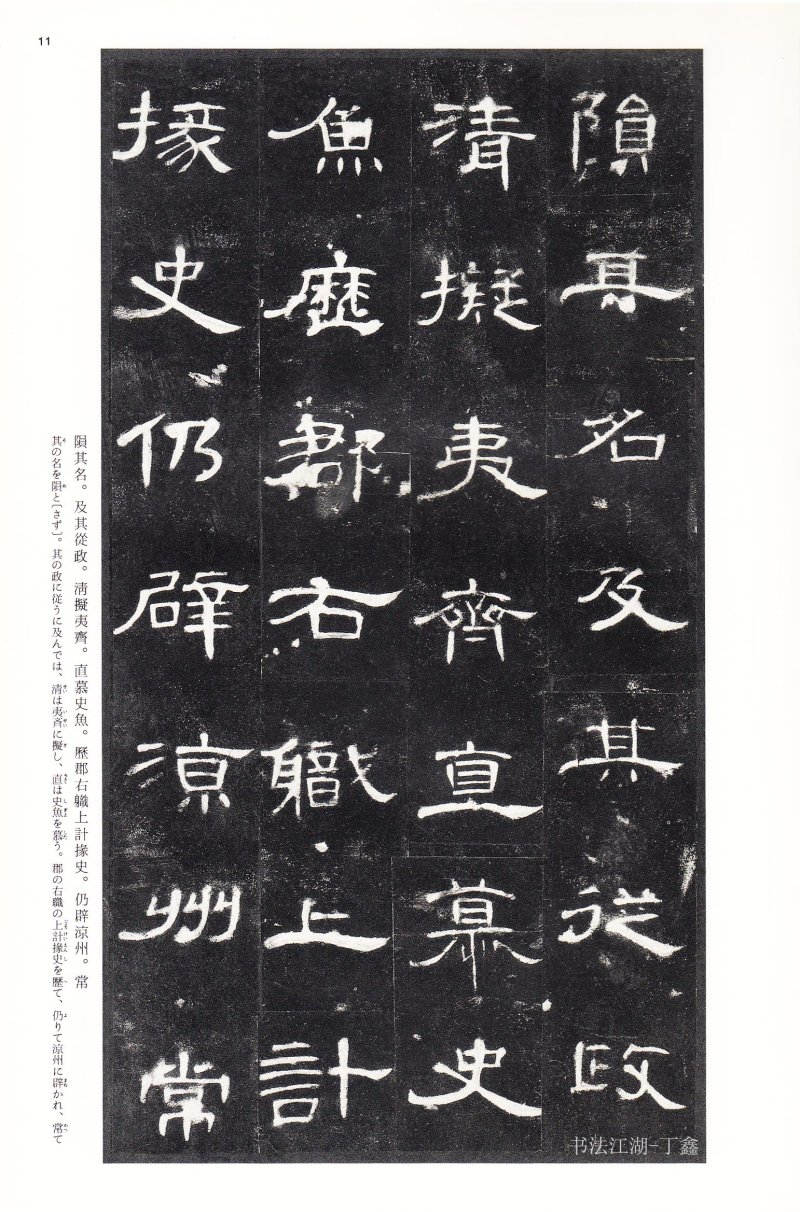 11
隕其名及其從政
清擬夷齊直慕史
魚歷郡右職上計
掾史仍辟涼州常
隕其名。及其從政。淸擬夷齊。直慕史魚。歷郡右職上計掾史。仍辟涼州。常
其の名を隕と〔さず〕。其の政に従うに及んでは、清は夷斉に擬し、直は史魚を慕う。郡の右職の上計掾史を歴て、仍りて涼州に辟かれ、常て
书法江湖-丁鑫